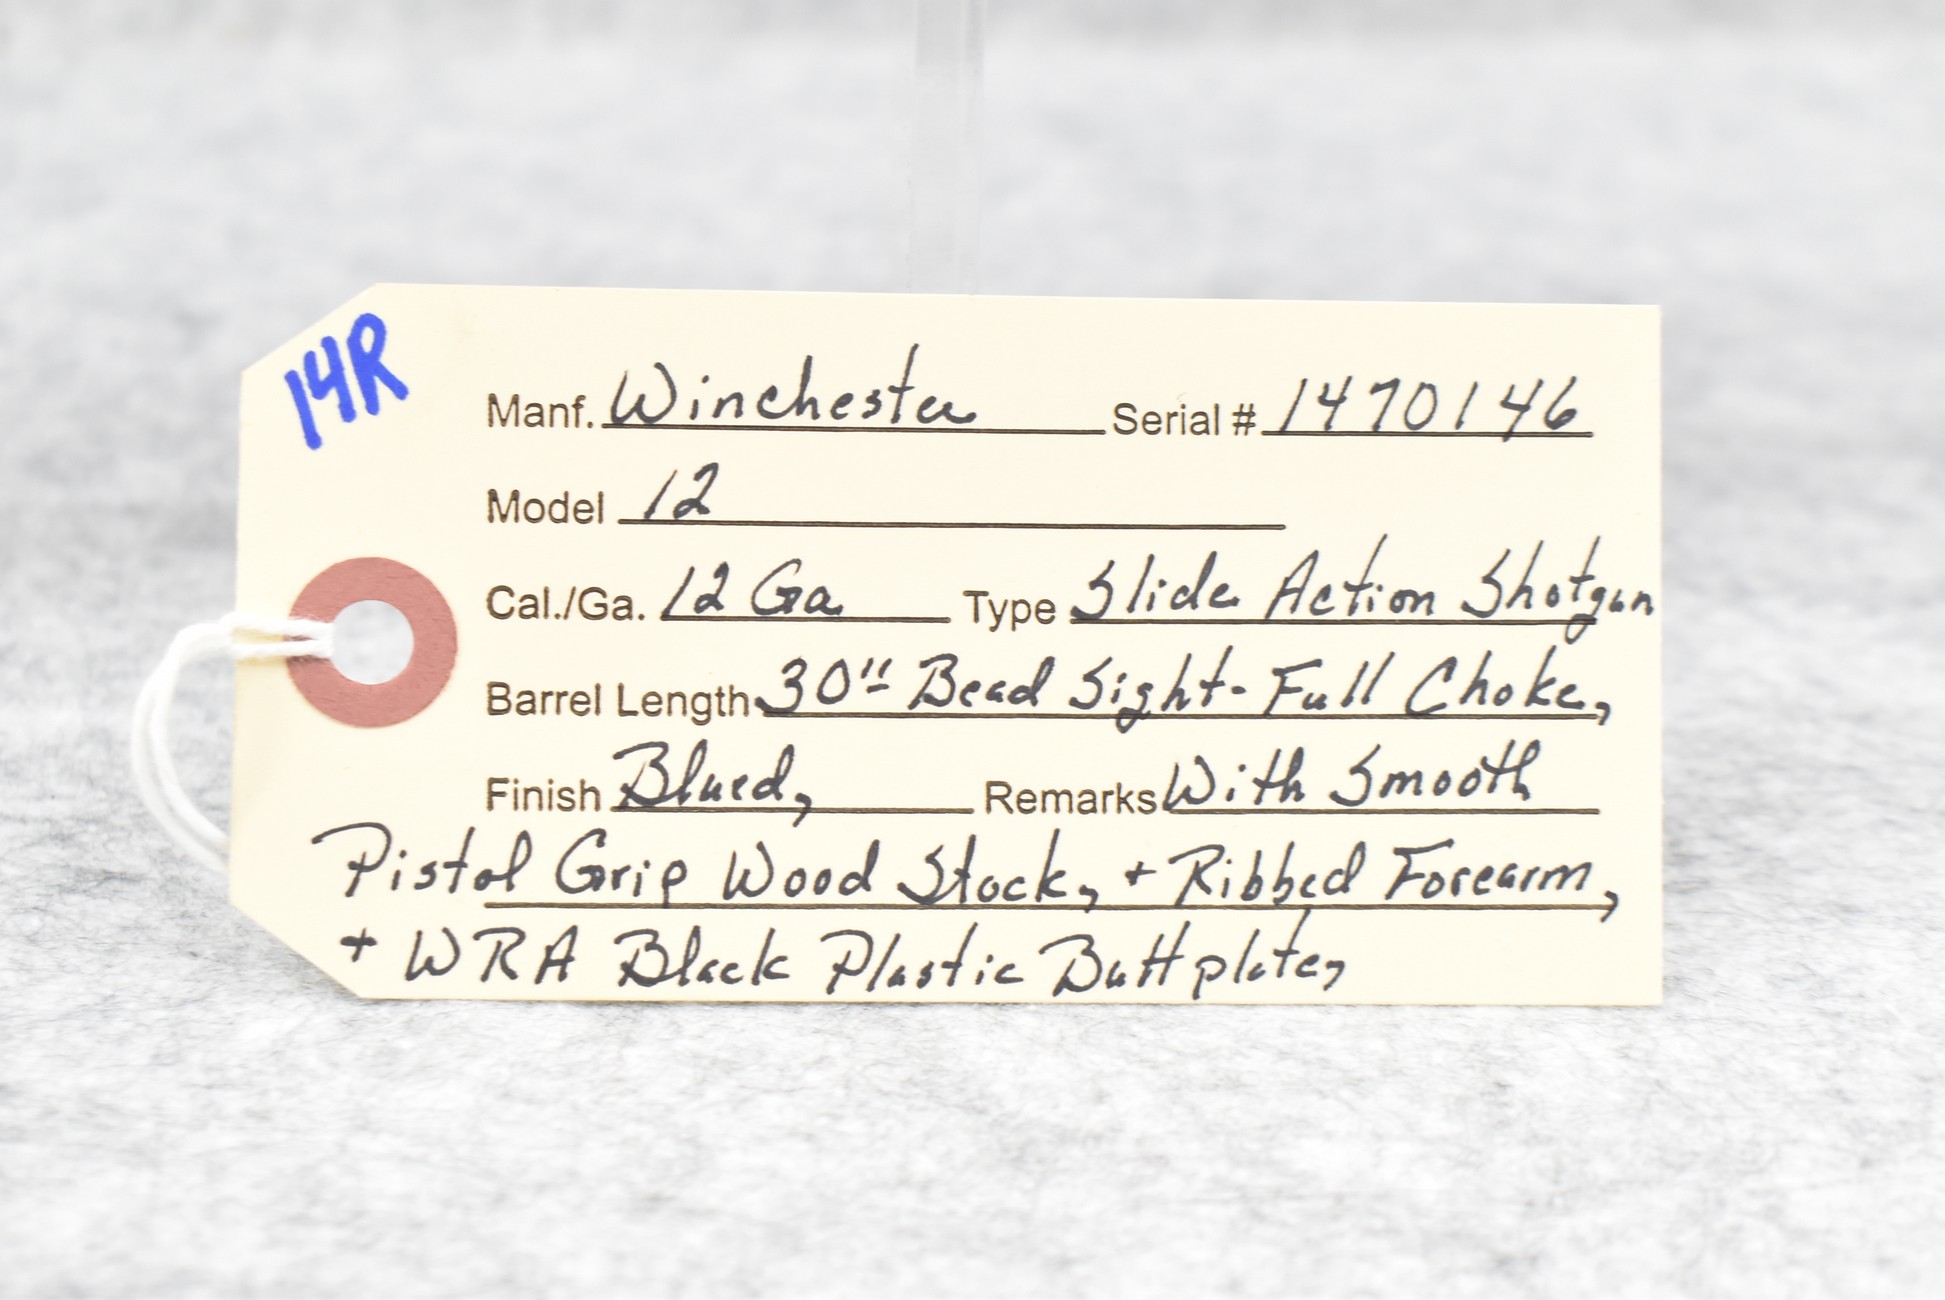 14R
Manf. Winchester Serial # 1470146
Model 12
Cal./Ga. 12 Ga. Type Slide Action Shotgun
Barrel Length 30" Bead Sight - Full Choke,
Finish Blued, Remarks With Smooth
Pistol Grip Wood Stock, + Ribbed Forearm,
+ WRA Black Plastic Buttplate,